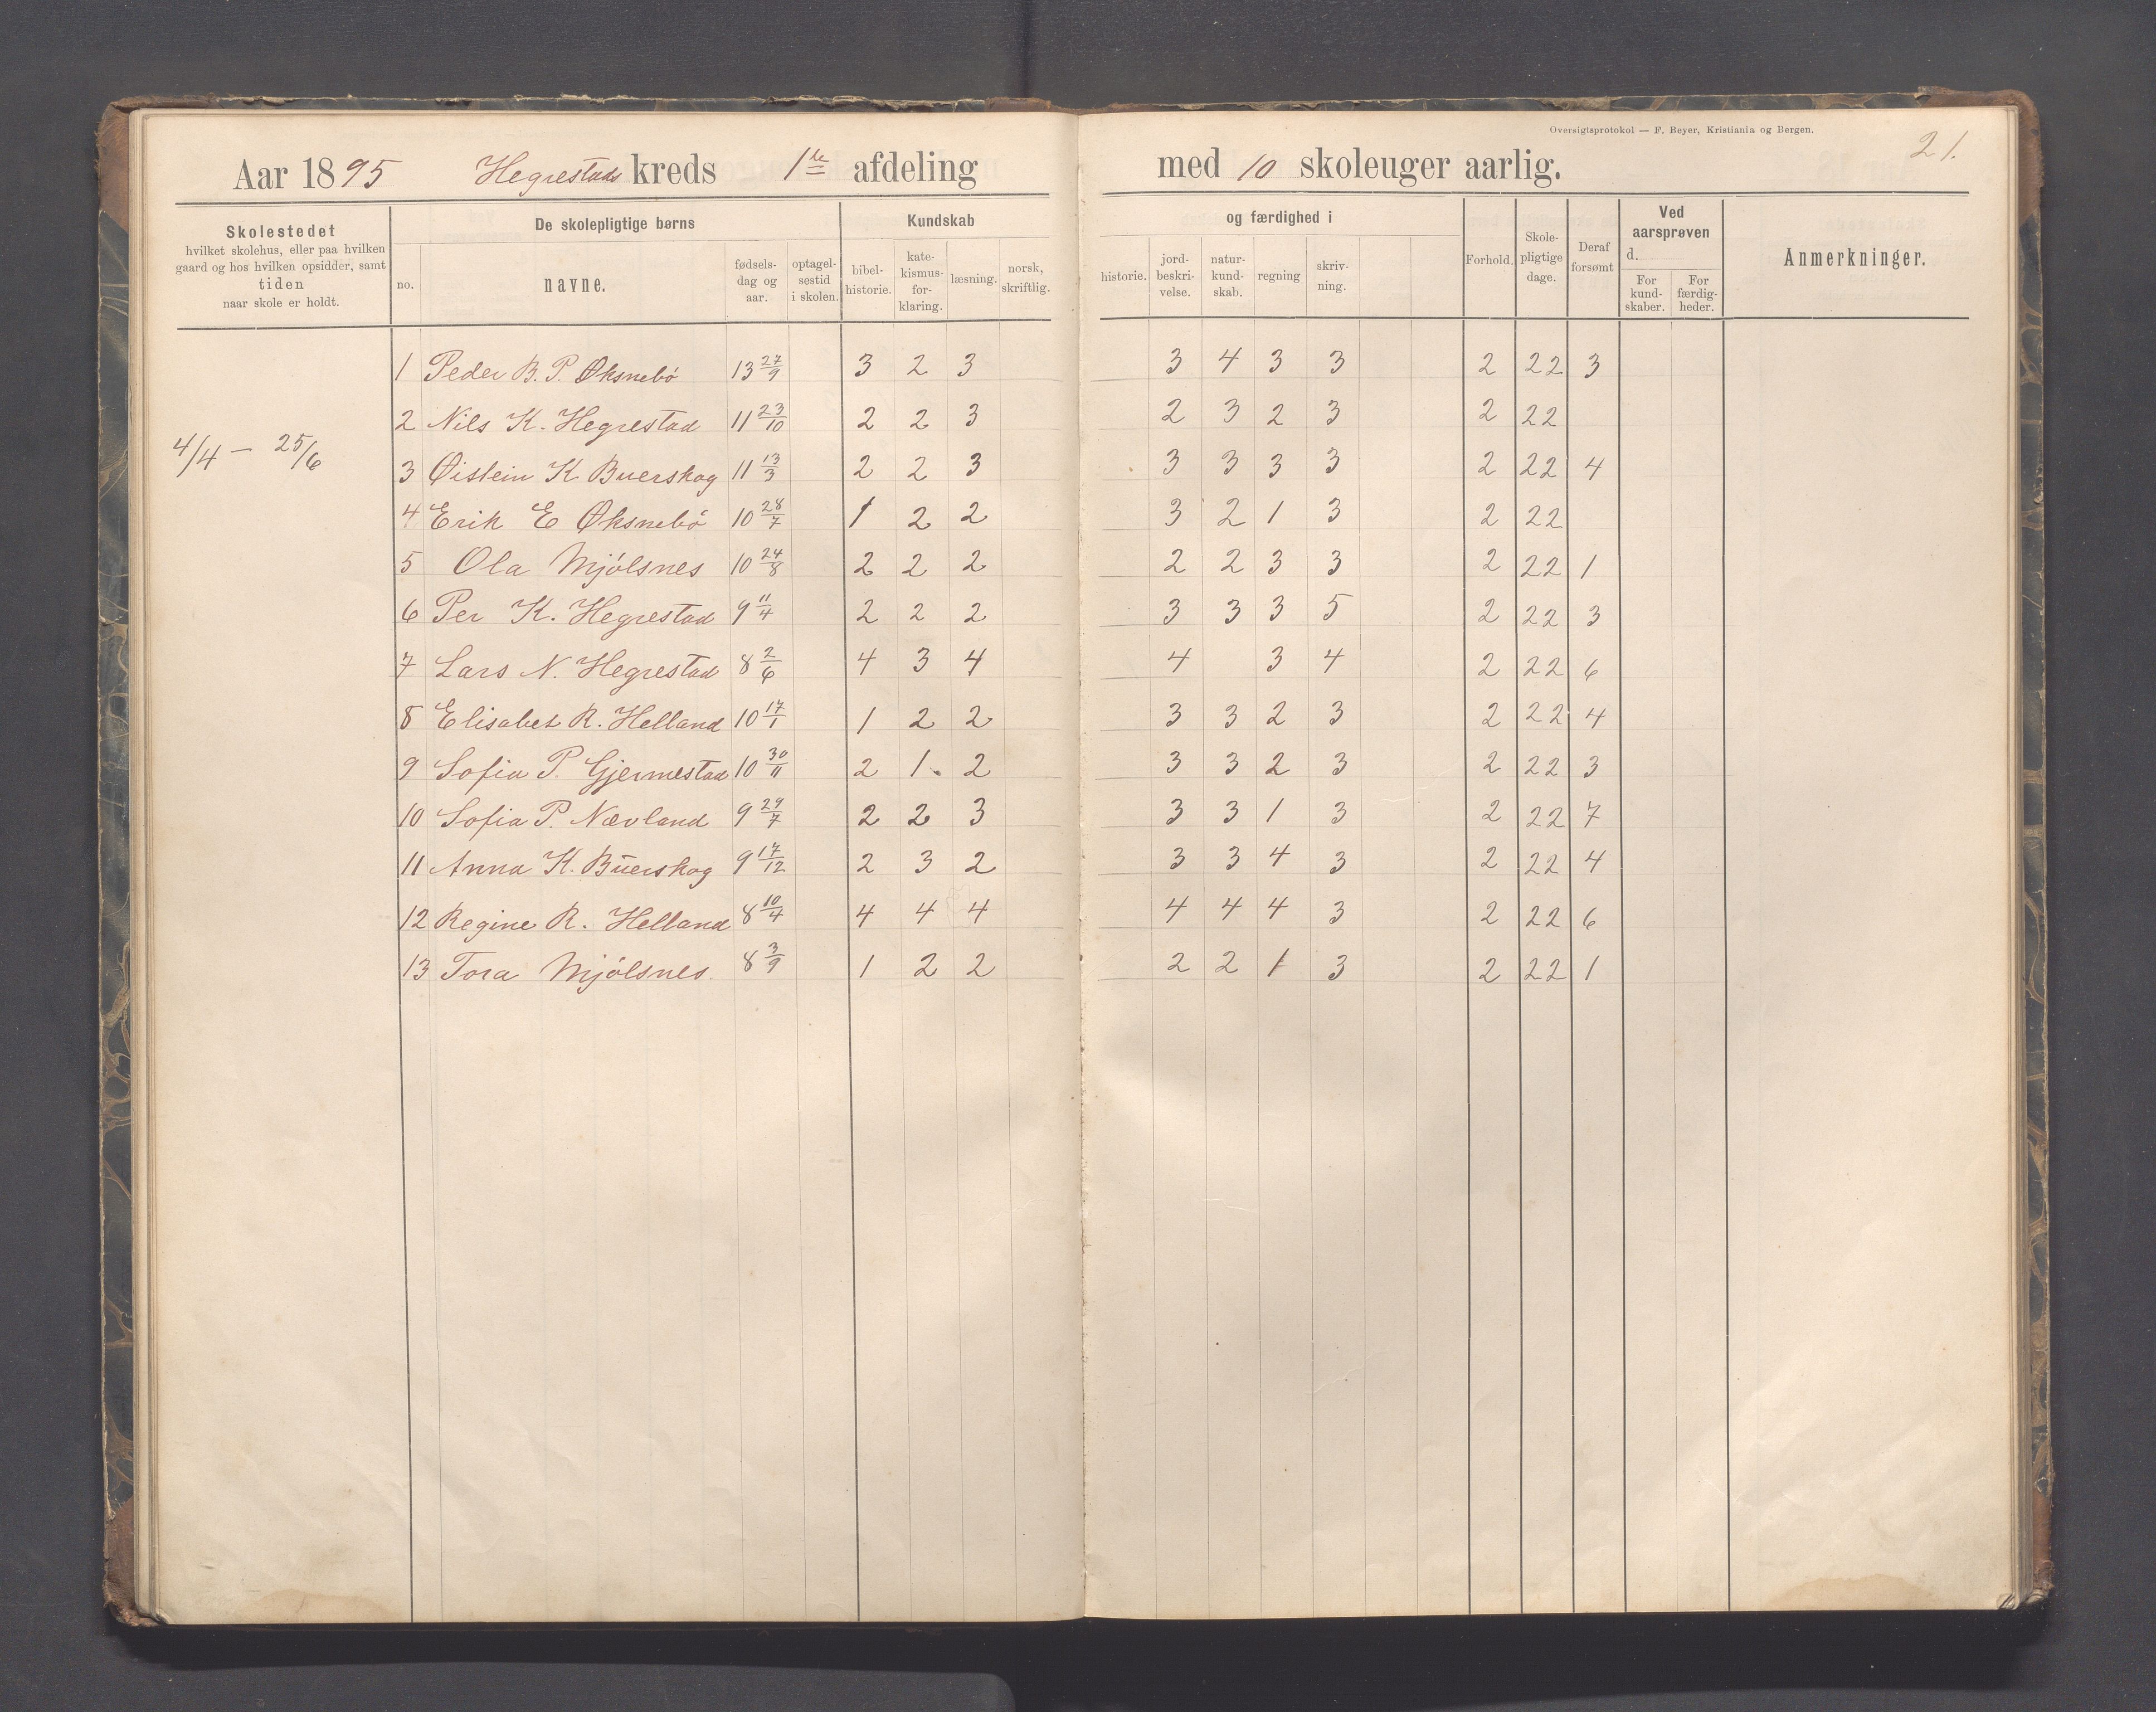 Oversigtsprotokol — F. Beyer, Kristiania og Bergen.
21.
Aar 1895 Hegrestads kreds 1ste afdeling med 10 skoleuger aarlig.
Skolestedet
hvilket skolehus, eller paa hvilken
gaard og hos hvilken opsidder, samt
tiden
naar skole er holdt.
De skolepligtige børns
no.
navne.
fødsels-
dag og
aar.
optagel-
sestid
i skolen.
Kundskab
bibel-
historie.
kate-
kismus-
for-
klaring.
læsning.
norsk,
skriftlig.
og færdighed i
historie.
jord-
beskri-
velse.
natur-
kund-
skab.
regning
skriv-
ning.
Forhold.
Skole-
pligtige
dage.
Deraf
forsømt
Ved
aarsprøven
d.
For
kund-
skaber.
For
færdig-
heder.
Anmerkninger.
4/4 — 25/6
1 Peder B. P. Øksnebö 13 27/9 3 2 3 3 4 3 3 2 22 3
2 Nils K. Hegrestad 11 23/10 2 2 3 2 3 2 3 2 22
3 Øistein K Buerskog 11 13/3 2 2 3 3 3 3 3 2 22 4
4 Erik E Øksnebö 10 28/7 1 2 2 3 2 1 3 2 22
5 Ola Mjölsnes 10 24/8 2 2 2 2 2 3 3 2 22 1
6 Per K. Hegrestad 9 11/4 2 2 2 3 3 3 5 2 22 3
7 Lars N. Hegrestad 8 2/6 4 3 4 4 3 4 2 22 6
8 Elisabet R. Helland 10 17/1 1 2 2 3 3 2 3 2 22 4
9 Sofia P. Gjermestad 10 30/11 2 1. 2 3 3 2 3 2 22 3
10 Sofia P. Nævland 9 29/7 2 2 3 3 3 1 3 2 22 7
11 Anna K. Buerskog 9 17/12 2 3 2 3 3 4 3 2 22 4
12 Regine R. Helland 8 10/4 4 4 4 4 4 4 3 2 22 6
13 Tora Mjölsnes. 8 3/9 1 2 2 2 2 1 3 2 22 1